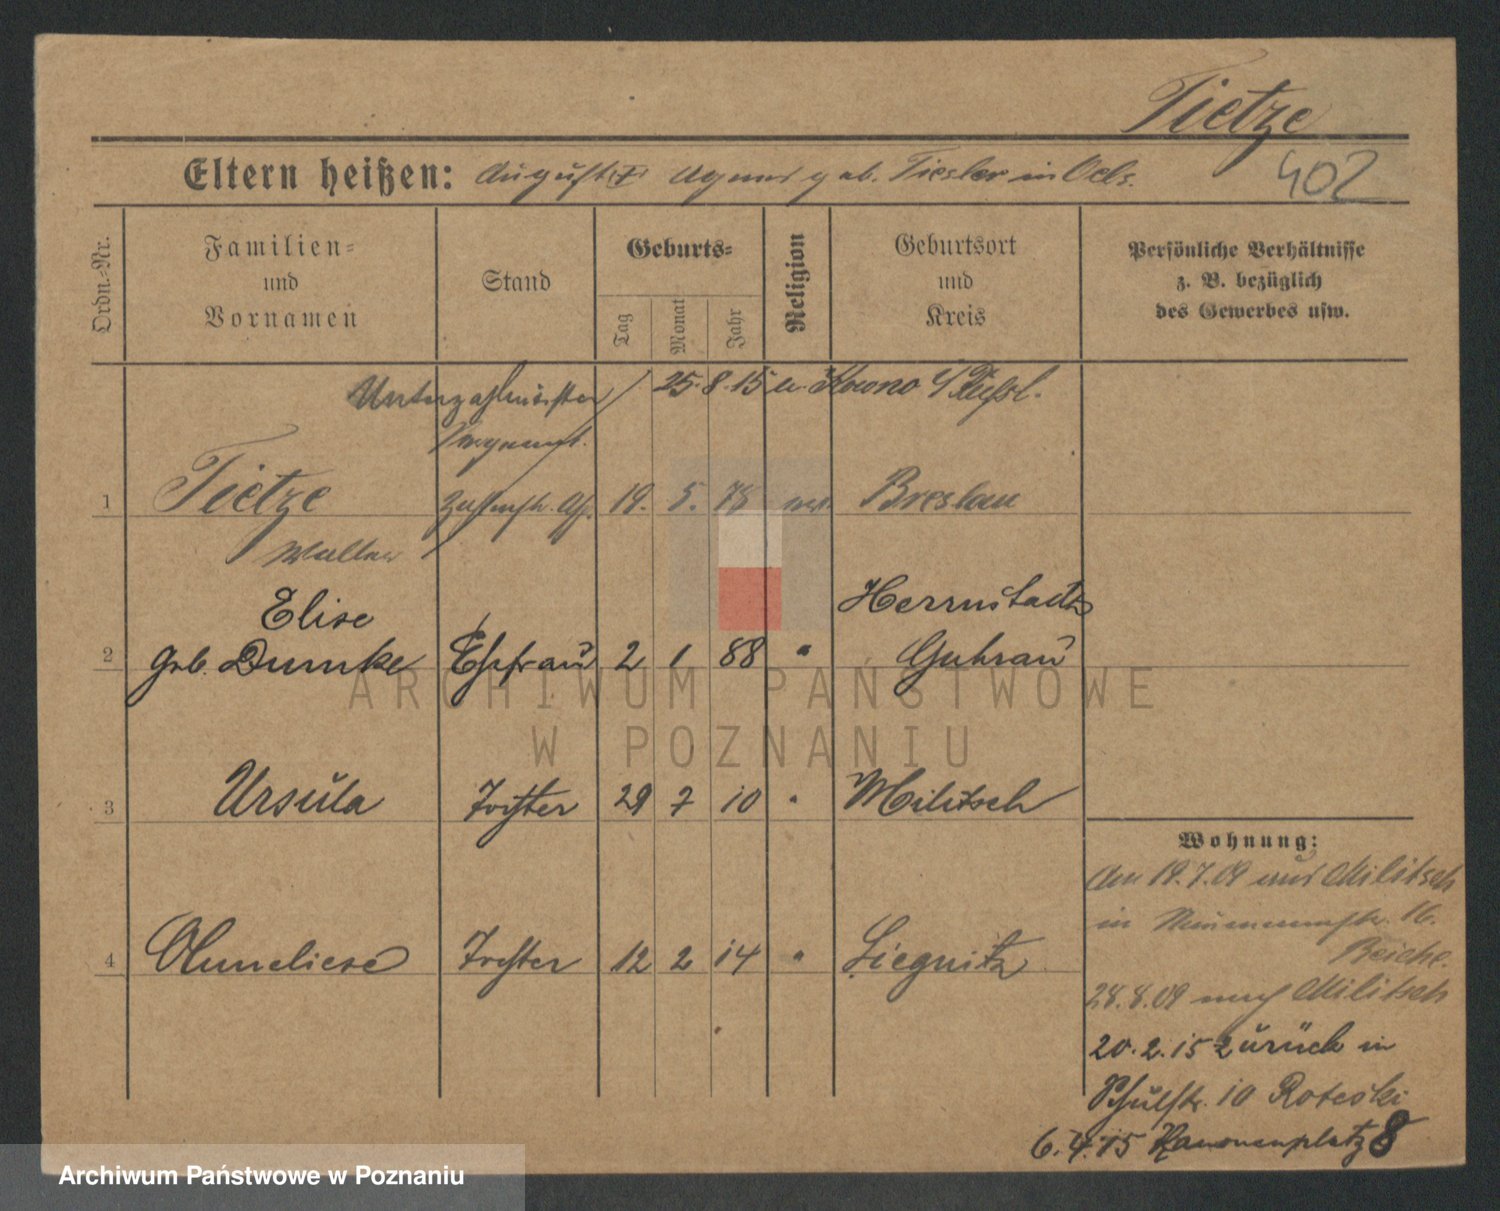 Tietze
Eltern heißen: August † Agnes geb. Tiesler in Oels.
402
Ordn.-Nr.
Familien-
und
Vornamen
Stand
Geburts-
Tag
Monat
Jahr
Religion
Geburtsort
und
Kreis
Persönliche Verhältnisse
z. B. bezüglich
des Gewerbes usw.
Unterzahlmeister 25.8.15 n. Kowno
1 Tietze 19. 5. 78 Breslau
Walter
Elise Herrnstadt
2 geb. Dumke Ehefrau 2 1 88 " Guhrau
3 Ursula Tochter 29 7 10 " Militsch
4 Anneliese Tochter 12 2 14 " Liegnitz
Wohnung:
Am 19.7.09 aus Militsch
in 16.
Reiche.
28.8.09 nach Militsch
20.2.15 zurück in
Schulstr. 10 Roteski
6.4.15 Kanonenplatz 8
ARCHIWUM PAŃSTWOWE
W POZNANIU
Archiwum Państwowe w Poznaniu